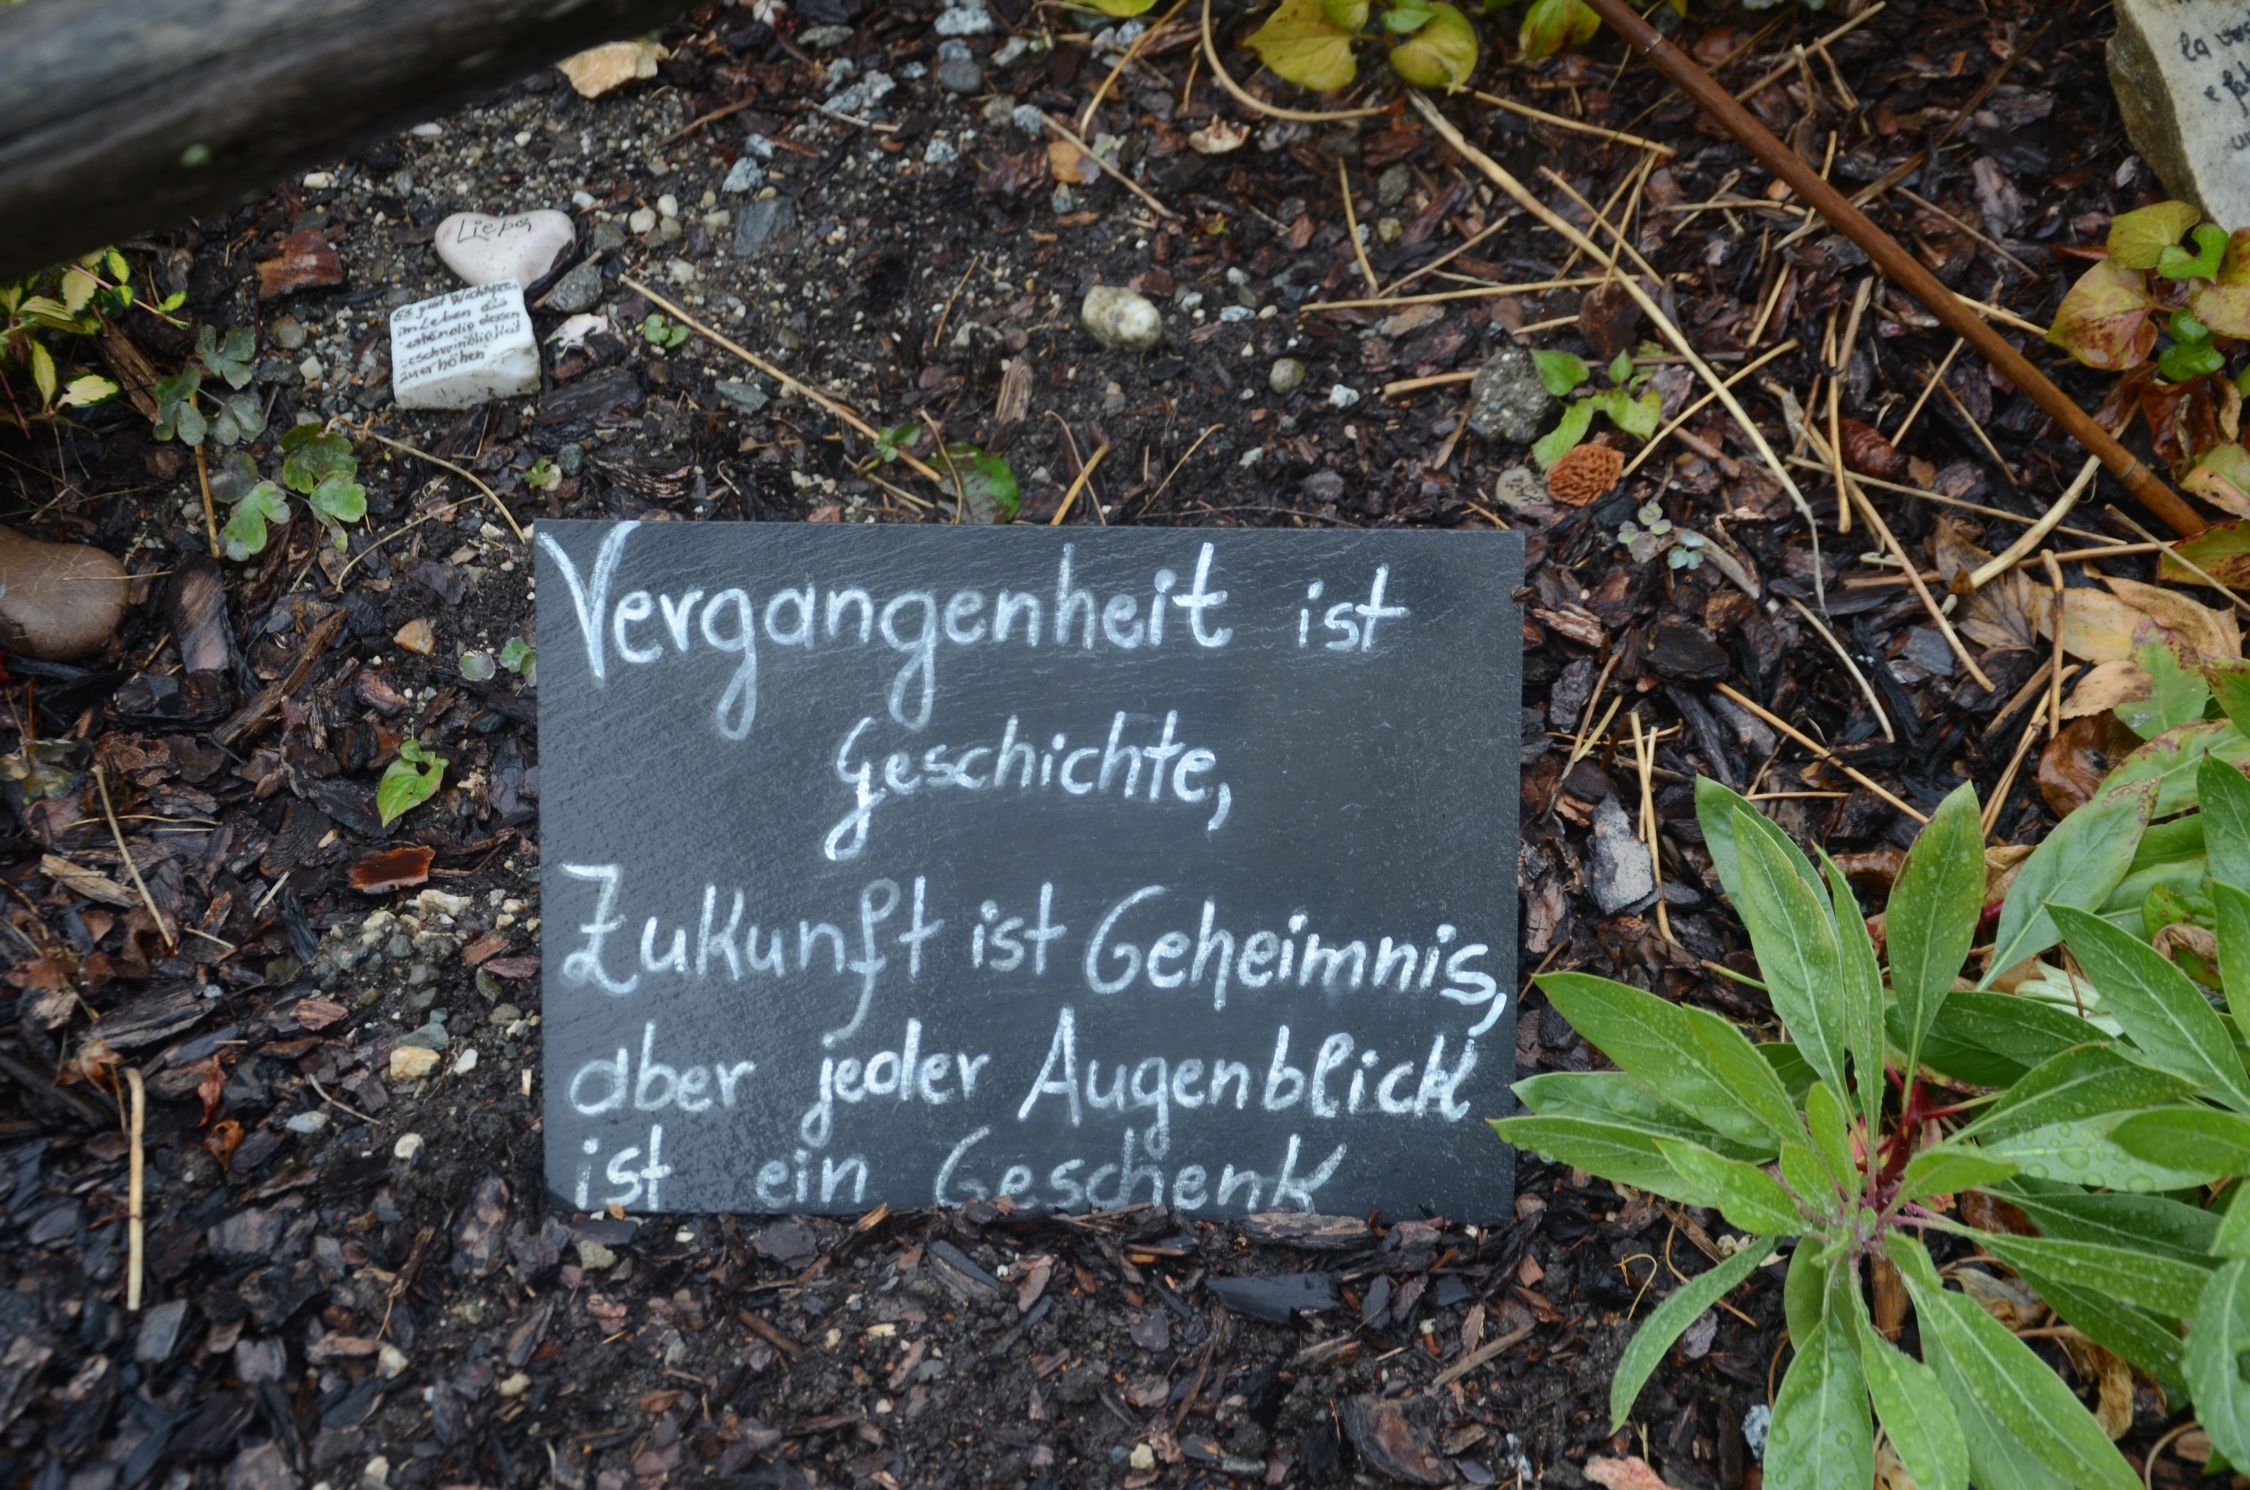 Liebe
Es gibt Wichtigeres
im Leben als
beständig dessen
Geschwindigkeit
zu erhöhen
Vergangenheit ist
Geschichte,
Zukunft ist Geheimnis,
aber jeder Augenblick
ist ein Geschenk
la
e